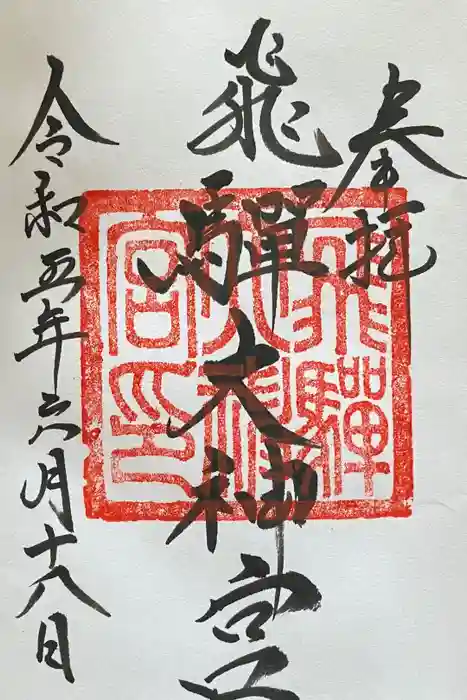 奉拝
飛驒大神宮
飛驒
大神
宮印
令和五年六月十八日